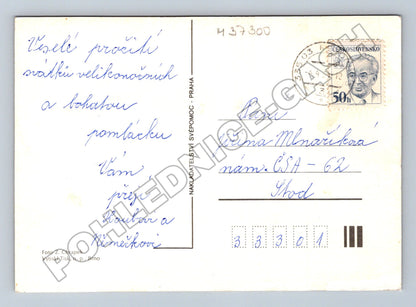 M 37300
Veselé prožití
svátků velikonočních
a bohatou
pomlázku
Vám
přejí
Koubova a
Němečkovi
Foto Z.
NAKLADATELSTVÍ SVÉPOMOC - PRAHA
ČESKOSLOVENSKO
50h
335 03
Paní
Mlnaříková
nám. ČSA - 62
Stod
3 3 3 0 1
POHLEDNICE-GARH